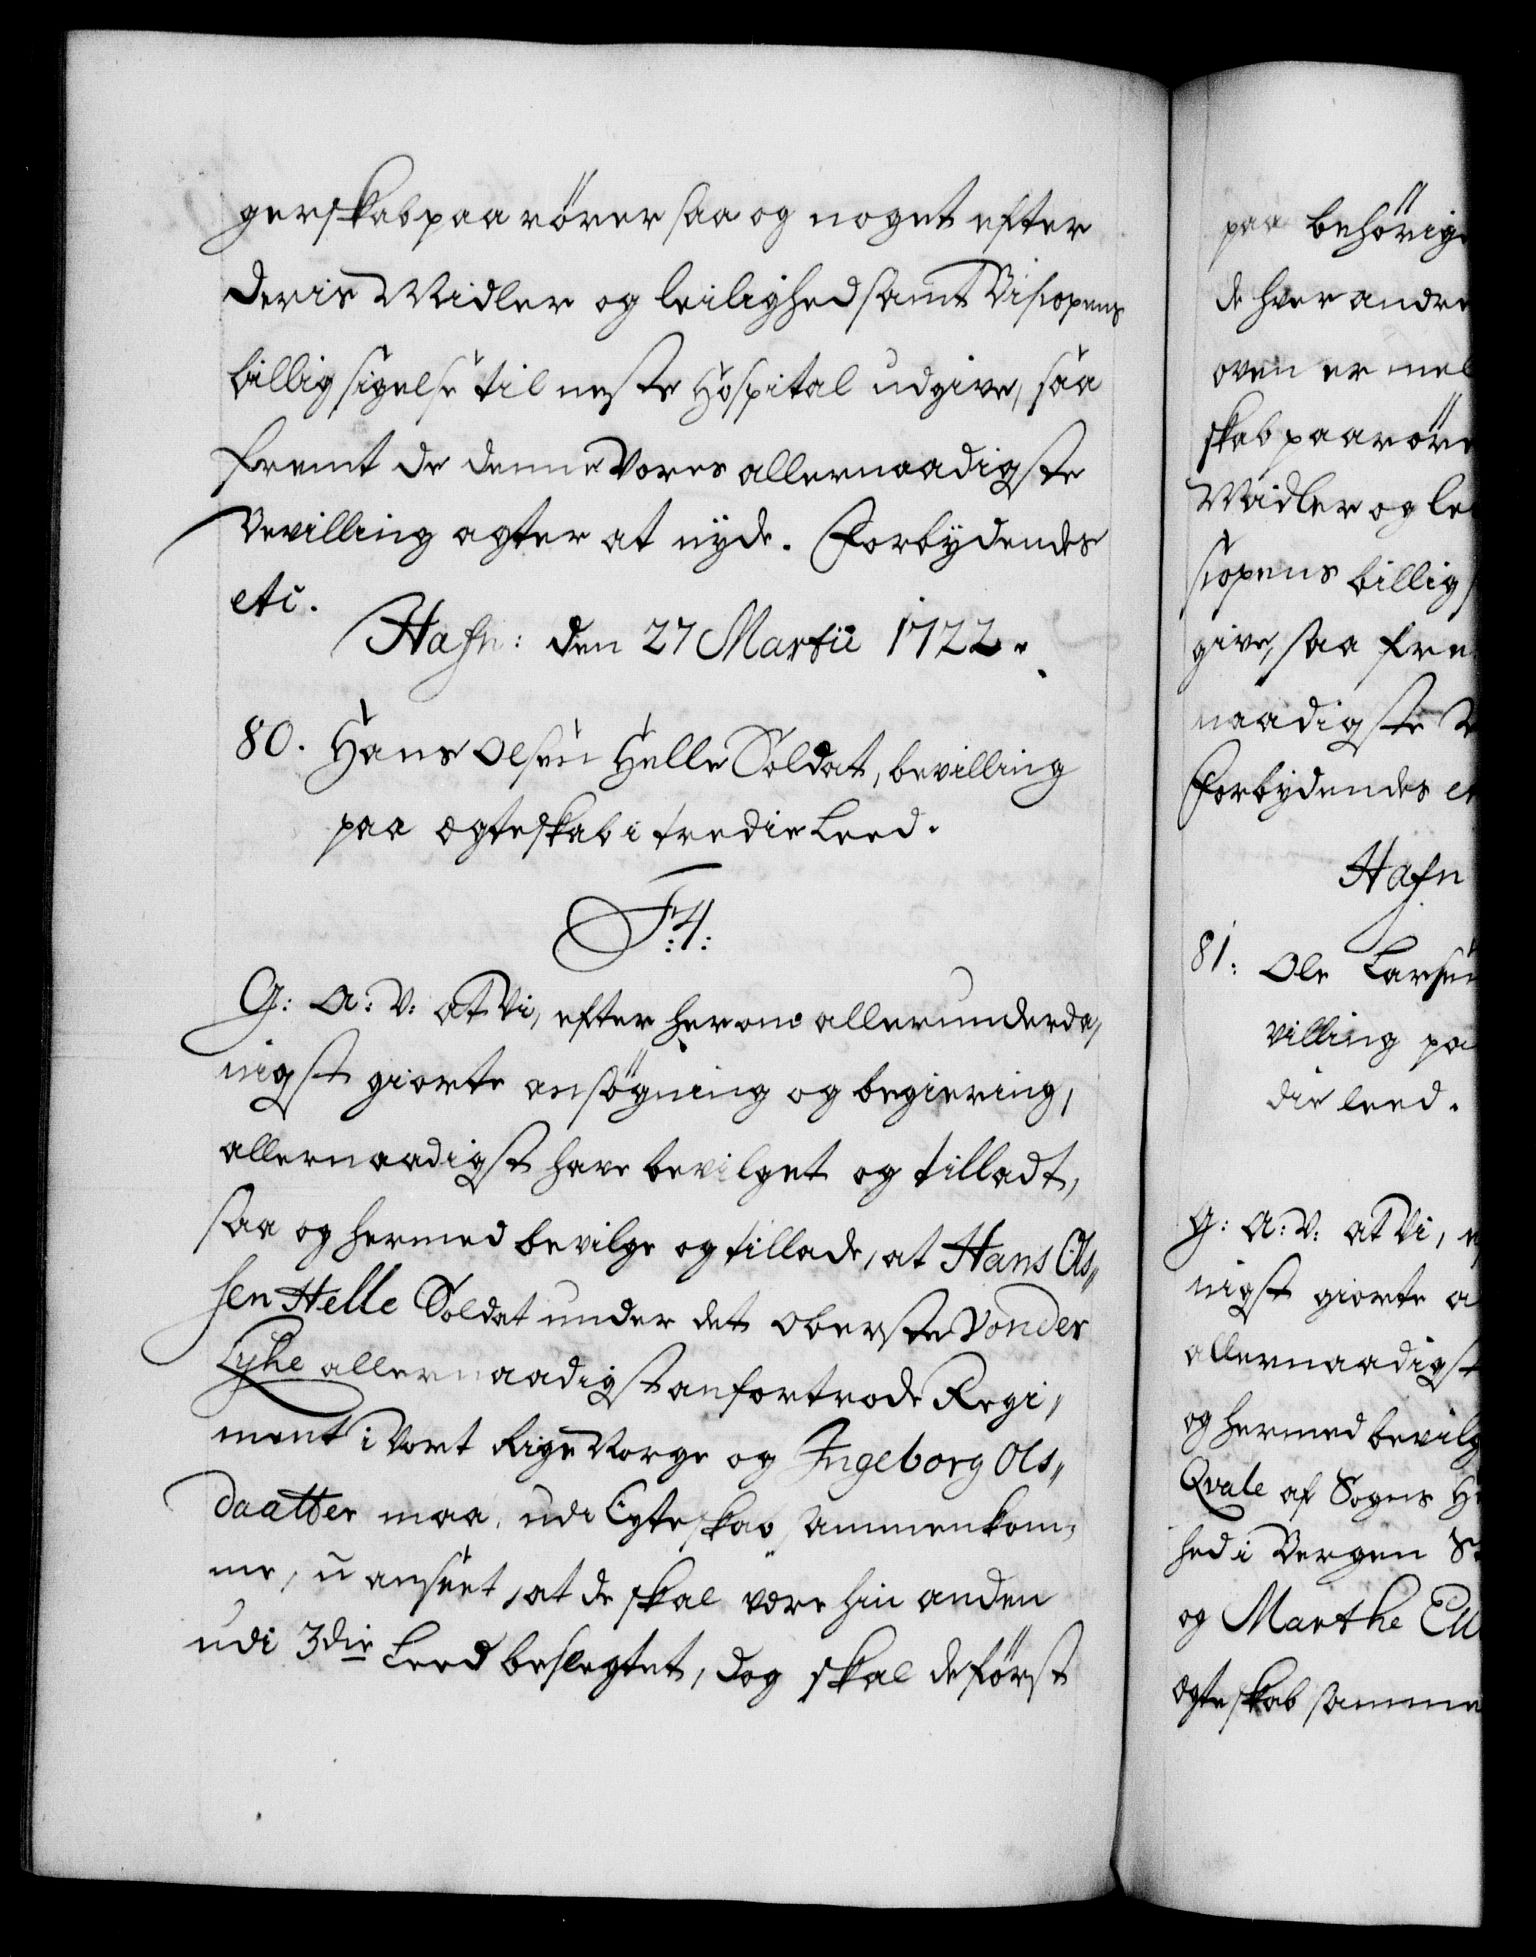 gerskab paarörer saa og noget efter
deris Midler og leilighed samt Bisopens
billig sigelse til neste Hospital udgive, saa
fremt de denne Vores allernaadigste
Bevilling agter at nyde. Forbydendes
etc.
Hafn: den 27 Martii 1722.
80. Hans Olsen Helle Soldat, bevilling
paa ægteskab i tredie Leed.
F:4:
G: A: V: at Vi, efter herom allerunderda,
nigst giorte ansögning og begiering,
allernaadigst have bevilget og tilladt,
saa og hermed bevilge og tillade, at Hans Ols,,
sen Helle Soldat under det Oberste Vonder
Lyhe allernaadigst anfortrode Regi,
ment i Vort Rige Norge og Ingeborg Ols,,
daatter maa udi Egteskab sammenkom,
me, u anseet, at de skal være hin anden
udi 3die Leed beslegtet, dog skal de först
paa behörige
de hver andre
oven er mel
skab paaröre
Midler og lei
sopens billig s
give, saa fre
naadigste B
Forbydendes et
Hafn
81: Ole Larsen
villing pa
die leed.
G: A: V: at Vi, e
nigst giorte a
allernaadigst
og hermed bevilg
Qvale af Sogns H
hed i Bergen S
og Marthe Ell
ægteskab samme